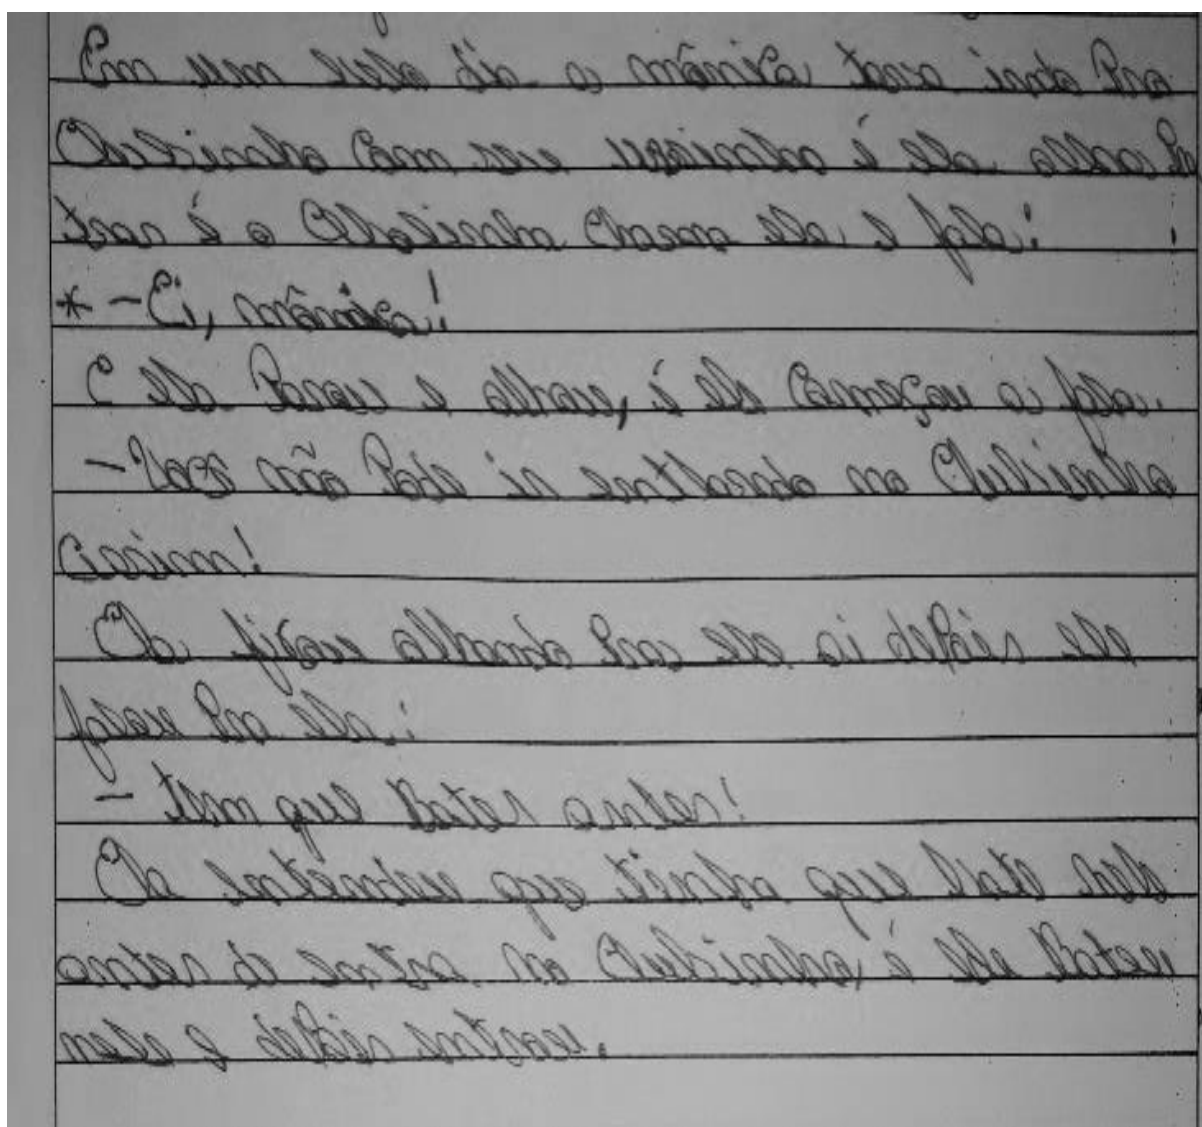 Em um belo dia a mônica tava indo Pro
Clubinho Com seu ursinho é ele olha Pra
tras é o Cebolinha Chama ela e fala:
* - Ei, mônica!
E ela Parou e olhou, é ele Começou a fala
- Você não Pode ir entrando no Clubinho
assim!
Ela ficou olhando Para ele ai depois ele
falou Pra ela:
- tem que Bater antes!
Ela entendeu que tinha que bate neles
antes de entra no Clubinho, é ela Bateu
neles e depois entrou.